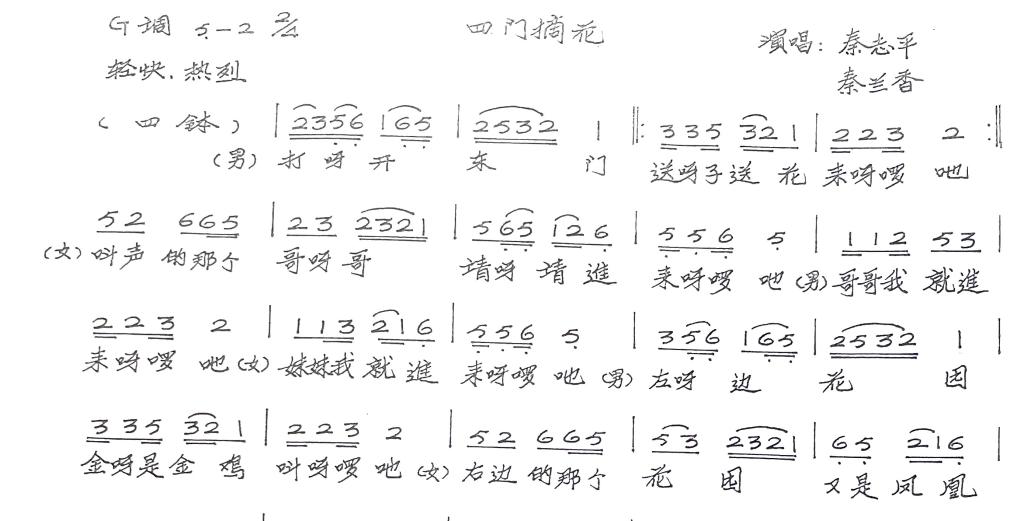 G调 5-2 2/4 四门摘花 演唱: 秦志平
轻快.热烈 秦兰香
(四钵) | 2356 165 | 2532 1 ‖: 335 321 | 223 2 :‖
(男) 打呀开 东门 送呀子送花 来呀啰吔
52 665 | 23 2321 | 565 126 | 556 5 | 112 53 |
(女) 叫声的那个 哥呀哥 請呀請進 来呀啰吔 (男) 哥哥我就進
223 2 | 113 216 | 556 5 | 356 165 | 2532 1 |
来呀啰吔 (女) 妹妹我就進 来呀啰吔 (男) 左呀边 花园
335 321 | 223 2 | 52 665 | 53 2321 | 65 216 |
金呀是金鸡 叫呀啰吔 (女) 右边的那个 花园 又是凤凰